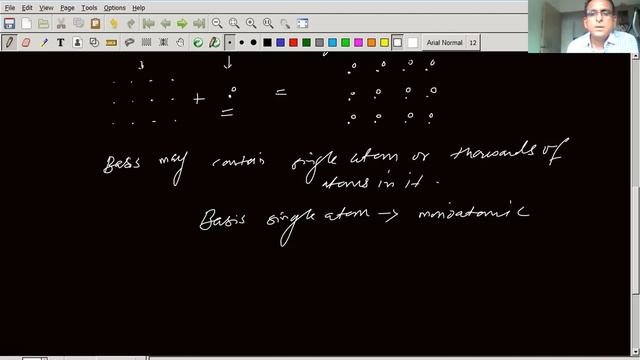 File Edit View Page Tools Options Help
Arial Normal 12
+ =
Basis may contain single atom or thousands of
atoms in it.
Basis single atom → monoatomic